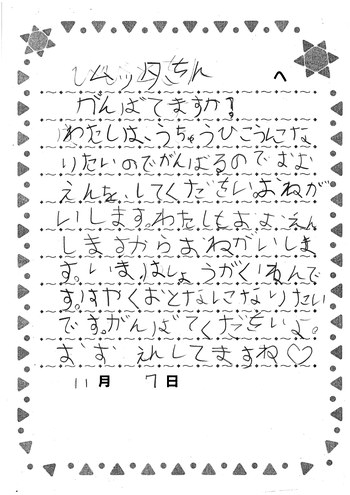 しムッタさん へ
がんばてますか?
わたしは、うちゅうひこうしにな
りたいのでがんばるのでおお
えんを、してくださいおねが
いします。わたしもおおえん
しますからおねがいしま
す。いまはしょうがくいねんで
す。はやくおとなにになりたい
です。がんばてくださいよ。
おお えんしてますね♡
11月 7日